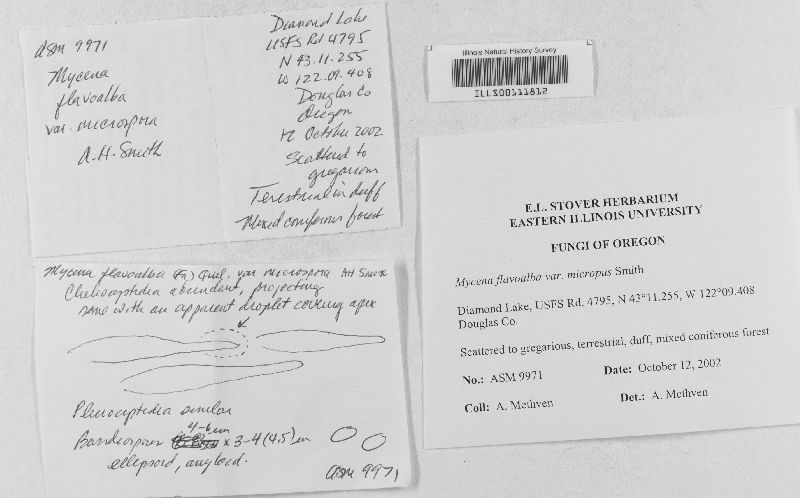 ASM 9971
Mycena
flavoalba
var. microspora
A.H. Smith
Diamond Lake
USFS Rd 4795
N 43.11.255
W 122.09.408
Douglas Co
Oregon
12 October 2002
Scattered to
gregarious
Terrestrial in duff
Mixed coniferous forest
Illinois Natural History Survey
ILLS00111812
E.L. STOVER HERBARIUM
EASTERN ILLINOIS UNIVERSITY
FUNGI OF OREGON
Mycena flavoalba var. micropus Smith
Diamond Lake, USFS Rd. 4795, N 43°11.255, W 122°09.408
Douglas Co.
Scattered to gregarious, terrestrial, duff, mixed coniferous forest
No.: ASM 9971 Date: October 12, 2002
Coll: A. Methven Det.: A. Methven
Mycena flavoalba (Fr.) Quel. var microspora AH Smith
Cheilocystidia abundant, projecting
some with an apparent droplet covering apex
Pleurocystidia similar
4-6 um
Basidiospores x 3-4 (4.5) um
ellipsoid, amyloid.
ASM 9971